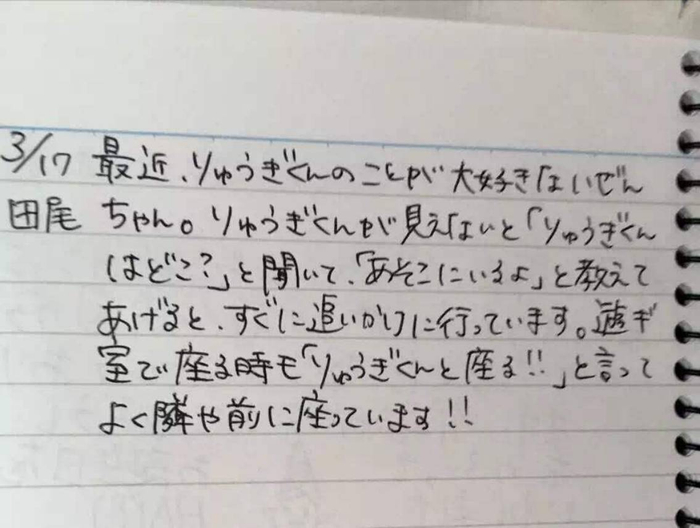 3/17 最近、りゅうぎくんのことが大好きないぜん
田尾 ちゃん。りゅうぎくんが見えないと「りゅうぎくん
はどこ?」と聞いて、「あそこにいるよ」と教えて
あげると、すぐに追いかけに行っています。遊ギ
室で座る時も「りゅうぎくんと座る!!」と言って
よく隣や前に座っています!!